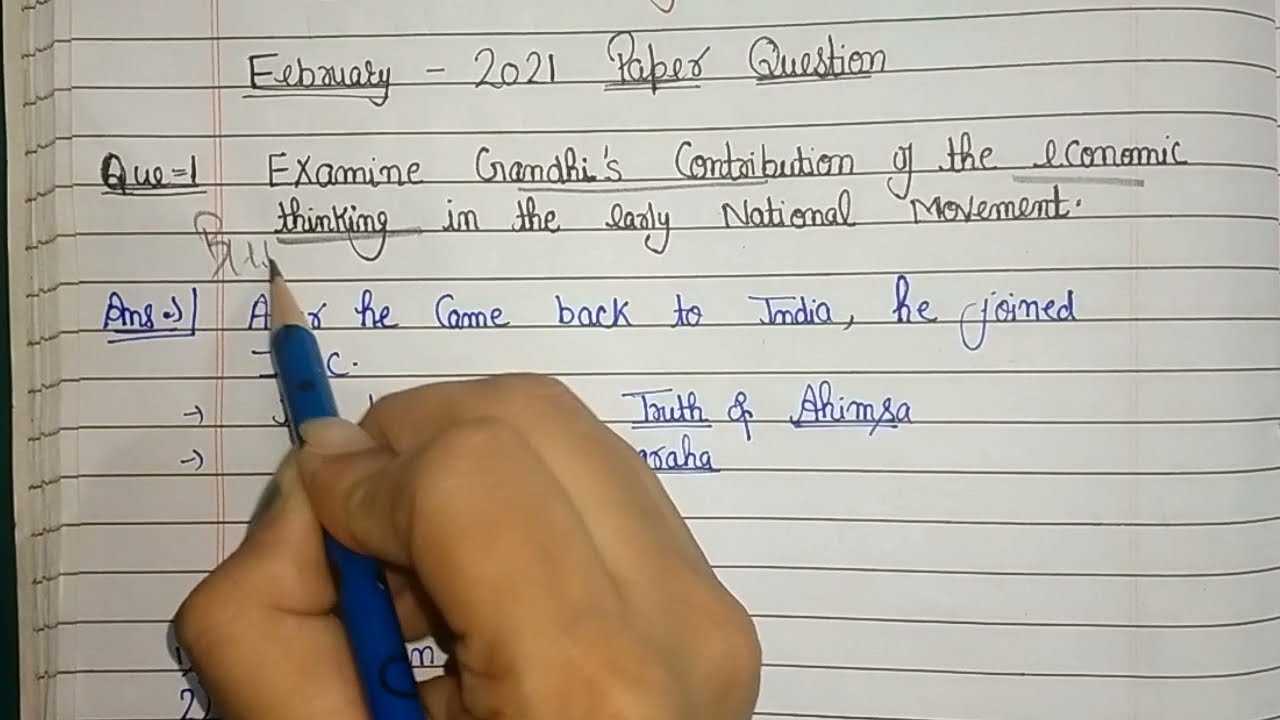 February - 2021 Paper Question
Que=1 Examine Gandhi's Contribution of the economic
thinking in the early National Movement.
Ans=> he Came back to India, he joined
C.
→ Truth & Ahimsa
→
1)
2)